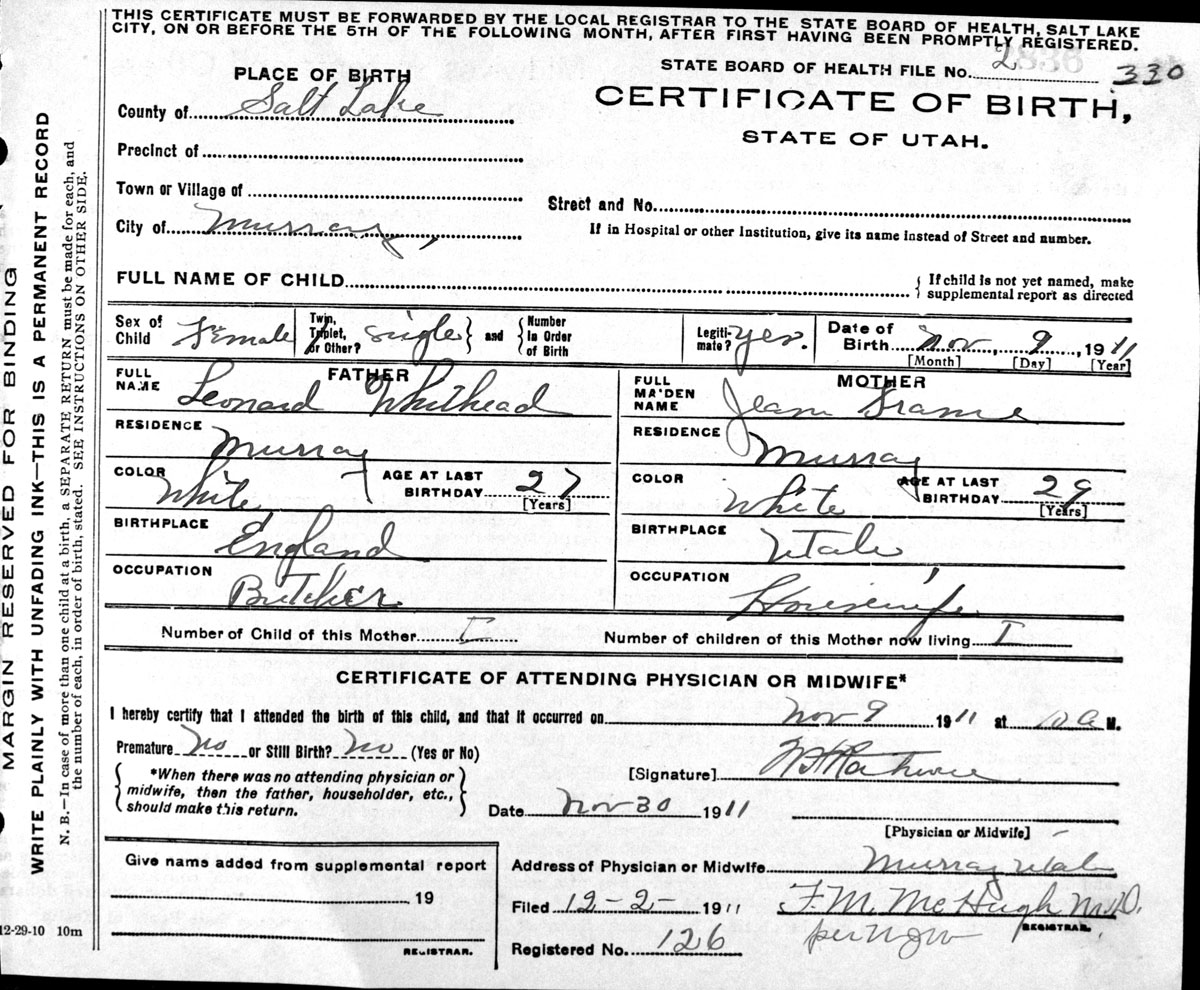 THIS CERTIFICATE MUST BE FORWARDED BY THE LOCAL REGISTRAR TO THE STATE BOARD OF HEALTH, SALT LAKE
CITY, ON OR BEFORE THE 5TH OF THE FOLLOWING MONTH, AFTER FIRST HAVING BEEN PROMPTLY REGISTERED.
STATE BOARD OF HEALTH FILE No. 2 330
PLACE OF BIRTH
CERTIFICATE OF BIRTH,
STATE OF UTAH.
County of Salt Lake
Precinct of
Town or Village of
Street and No.
City of Murray,
If in Hospital or other Institution, give its name instead of Street and number.
FULL NAME OF CHILD
{ If child is not yet named, make
supplemental report as directed
Sex of Child Female
Twin, Triplet, or Other? single } and { Number In Order of Birth
Legitimate? yes.
Date of Birth Nov, 9, 1911
[Month] [Day] [Year]
FATHER
FULL NAME Leonard Whithead
MOTHER
FULL MAIDEN NAME Jean
RESIDENCE Murray
RESIDENCE Murray
COLOR White
AGE AT LAST BIRTHDAY 27
[Years]
COLOR White
AGE AT LAST BIRTHDAY 29
[Years]
BIRTHPLACE England
BIRTHPLACE Utah
OCCUPATION Butcher
OCCUPATION Housewife
Number of Child of this Mother I
Number of children of this Mother now living I
CERTIFICATE OF ATTENDING PHYSICIAN OR MIDWIFE*
I hereby certify that I attended the birth of this child, and that it occurred on Nov 9 1911 at A M.
Premature No or Still Birth? No (Yes or No)
[Signature]
{ *When there was no attending physician or
midwife, then the father, householder, etc.,
should make this return. }
Date Nov 30 1911
[Physician or Midwife]
Give name added from supplemental report
19
REGISTRAR.
Address of Physician or Midwife Murray Utah
Filed 12-2- 1911 F. M. McHugh M.D.
REGISTRAR.
Registered No. 126 per
12-29-10 10m
MARGIN RESERVED FOR BINDING
WRITE PLAINLY WITH UNFADING INK—THIS IS A PERMANENT RECORD
N. B.—In case of more than one child at a birth, a SEPARATE RETURN must be made for each, and
the number of each, in order of birth, stated. SEE INSTRUCTIONS ON OTHER SIDE.